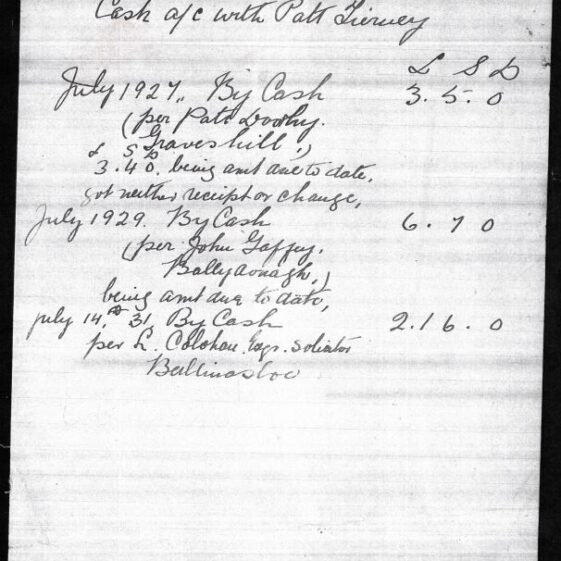 Cash a/c with Patt Tierney
£ S D
July 1927,, By Cash 3. 5. 0
(per Patt Doorhy.
Graveshill,)
£ S D
3. 4 0. being amt due to date,
got neither receipt or change,
July 1929. By Cash 6. 7 0
(per John Gaffey.
Ballydonagh,)
being amt due to date,
july 14th, 31, By Cash 2. 16. 0
per L. Colohan. Esqr. solicitor
Ballinasloe